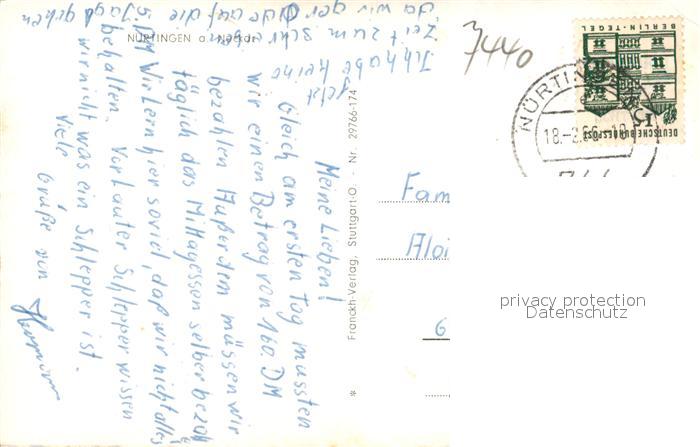 NÜRTINGEN a. Neckar
Meine Lieben!
Gleich am ersten Tag mussten
wir einen Betrag von 160. DM
bezahlen Außerdem müssen wir
täglich das Mittagessen selber bezahl
5 DM Wir lern hier soviel, daß wir nicht alles
behalten. Vor lauter Schlepper wissen
wir nicht was ein Schlepper ist.
Viele
Grüße von
Jetzt
Ich habe keine
Zeit zum schreiben
da wir gerade auf die Jagd gehen
Franckh-Verlag, Stuttgart-O. - Nr. 29766-174
*
7440
BERLIN-TEGEL
15
DEUTSCHE BUNDESPOST
NÜRTIN
18.-2.66-18
744
Fam
Aloi
6
privacy protection
Datenschutz